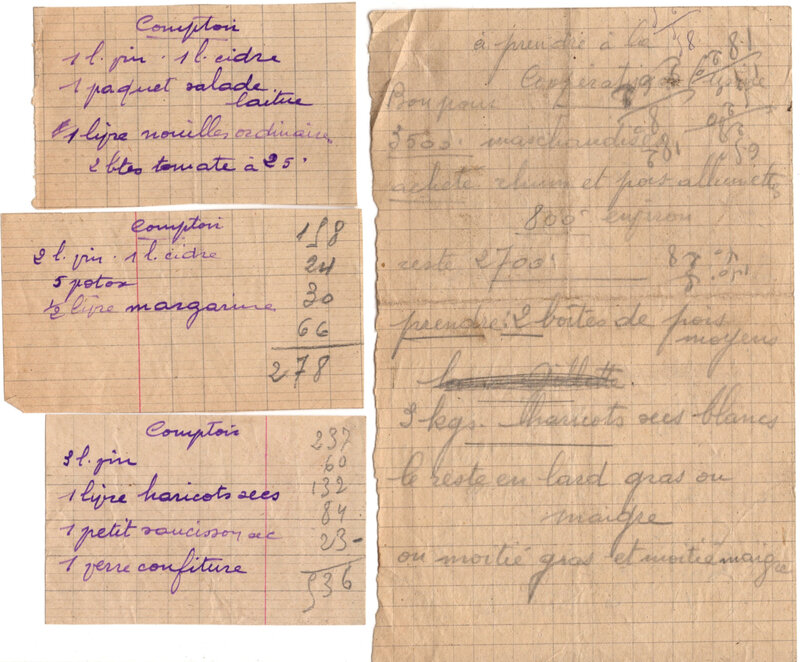 Comptoir
1 l. vin . 1 l. cidre
1 paquet salade
laitue
1 livre nouilles ordinaires
2 btes tomate à 25
Comptoir
2 l. vin . 1 l. cidre
5 potox
½ livre margarine
158
24
30
66
278
Comptoir
3 l. vin
1 livre haricots secs
1 petit saucisson sec
1 verre confiture
237
60
132
84
23
536
à prendre à la
Coopérative
Bon pour
3500 marchandises
acheté rhum et pois allumettes
800 environ
reste 2700
prendre 2 boîtes de pois
moyens
3 kgs. haricots secs blancs
le reste en lard gras ou
maigre
ou moitié gras et moitié maigre